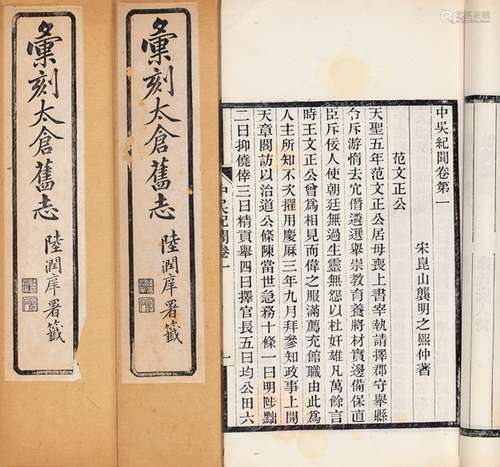 彙刻太倉舊志
陸潤庠署籤
彙刻太倉舊志
陸潤庠署籤
中吳紀聞卷第一
宋崑山龔明之熙仲著
范文正公
天聖五年范文正公居母喪上書宰執請擇郡守舉縣
令斥游惰去冗僭遴選舉崇教育養將材實邊備保直
臣斥佞人使朝廷無過生靈無怨以杜奸雄凡萬餘言
時王文正公曾爲相見而偉之服滿薦充館職由此爲
人主所知不次擢用慶厤三年九月拜參知政事上開
天章閣訪以治道公條陳當世急務十條一曰明陟黜
二曰抑僥倖三曰精貢舉四曰擇官長五曰均公田六
中吳紀聞卷一
一